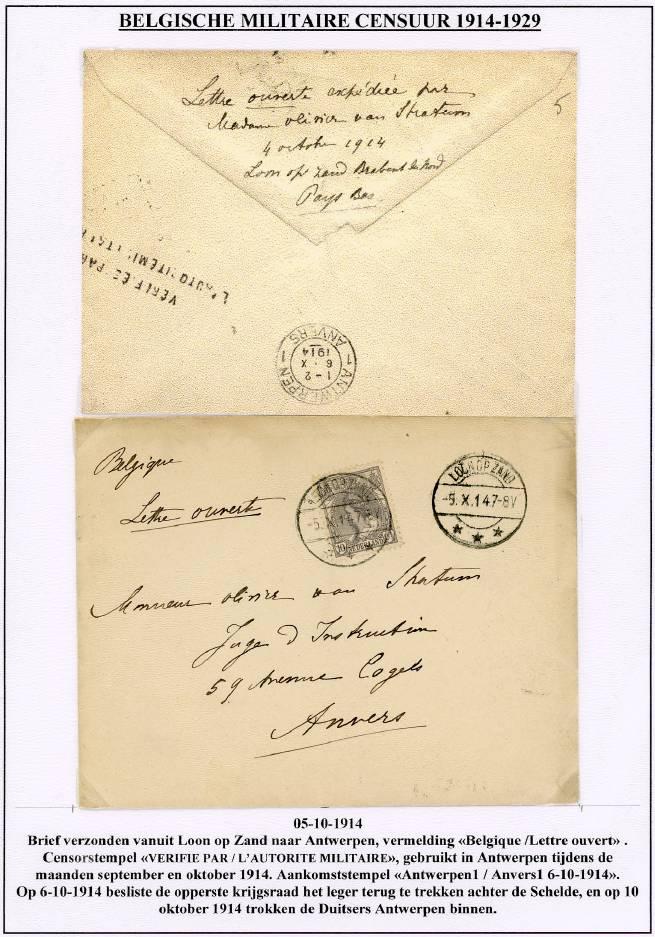 BELGISCHE MILITAIRE CENSUUR 1914-1929
Lettre ouverte expédiée par
Madame Olivier van Stratum
4 octobre 1914
Loon op Zand Brabant du Nord
Pays Bas
5
VERIFIEE PAR
L'AUTORITE MILITAI
1 ANTWERPEN 1
1-2
6 · X
1914
ANVERS
Belgique
Lettre ouverte
LOON OP ZAND
-5.X.14.7-8V
10
LOON OP ZAND
-5.X.14 7-8V
Monsieur Olivier van Stratum
Juge d'Instruction
59 Avenue Cogels
Anvers
05-10-1914
Brief verzonden vanuit Loon op Zand naar Antwerpen, vermelding «Belgique /Lettre ouvert» .
Censorstempel «VERIFIE PAR / L'AUTORITE MILITAIRE», gebruikt in Antwerpen tijdens de
maanden september en oktober 1914. Aankomststempel «Antwerpen1 / Anvers1 6-10-1914».
Op 6-10-1914 besliste de opperste krijgsraad het leger terug te trekken achter de Schelde, en op 10
oktober 1914 trokken de Duitsers Antwerpen binnen.